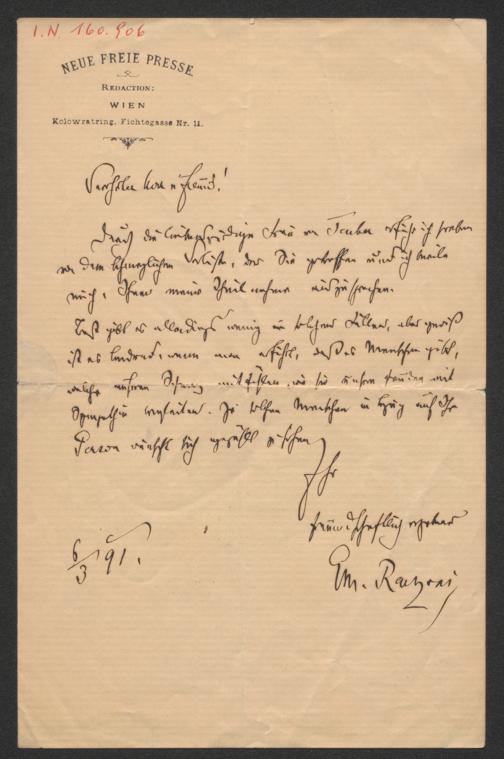 I.N. 160.906
NEUE FREIE PRESSE.
REDACTION:
WIEN
Kolowratring, Fichtegasse Nr. 11.
Verehrter Herr u Freund!
Durch die liebenswürdige Frau von Tauber erfuhr ich soeben
von dem schmerzlichen Verluste, der Sie getroffen und ich beeile
mich, Ihnen meine Theilnahme auszusprechen.
Trost gibt es allerdings wenig in solchen Fällen, aber gewiß
ist es lindernd, wenn man erfährt, daß es Menschen gibt,
welche unseren Schmerz mitfühlen, wie sie unsere Freuden mit
Sympathie begleiten. Zu solchen Menschen in Bezug auf Ihre
Person wünscht sich gezählt zu sehen
Ihr
freundschaftlich ergebener
Em. Ranzoni
6/3 91.